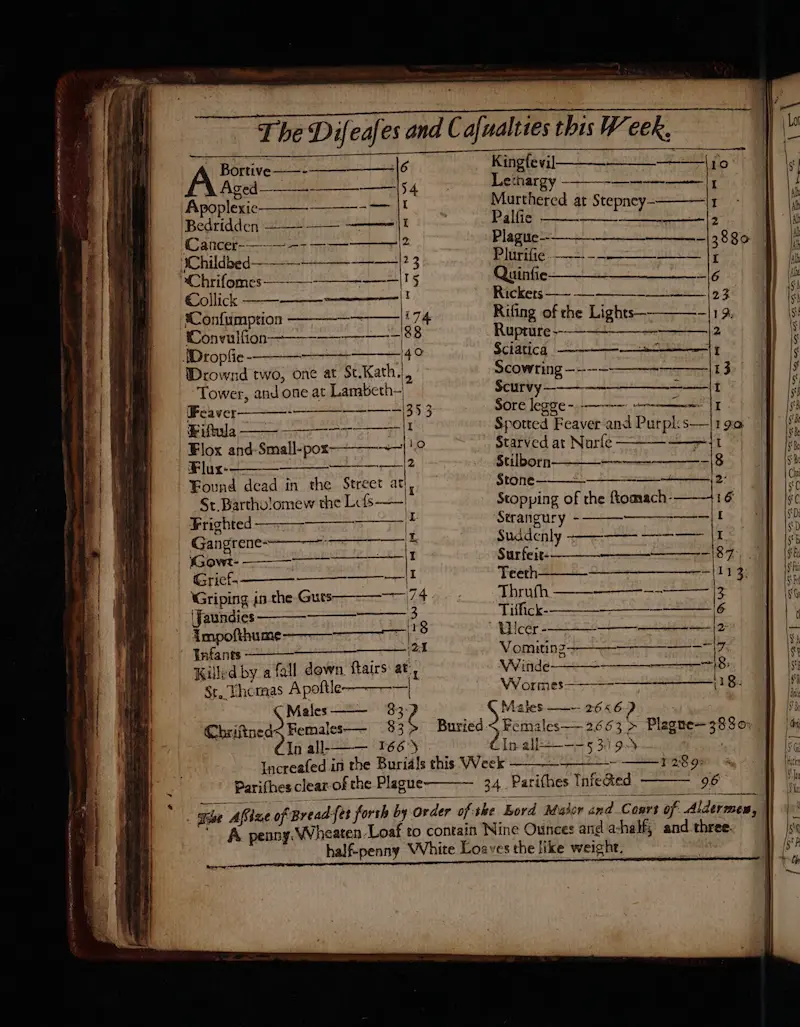 The Diſeaſes and Caſualties this Week.
ABortive 6
Aged 54
Apoplexie 1
Bedridden 1
Cancer 2
Childbed 23
Chriſomes 15
Collick 1
Conſumption 174
Convulſion 88
Dropſie 40
Drownd two, one at St.Kath.
Tower, and one at Lambeth 2
Feaver 353
Fiſtula 1
Flox and Small-pox 10
Flux 2
Found dead in the Street at
St.Bartholomew the Leſs 1
Frighted 1
Gangrene 1
Gowt 1
Grief 1
Griping in the Guts 74
Jaundies 3
Impoſthume 18
Infants 21
Killed by a fall down ſtairs at
St. Thomas Apoſtle 1
Kingſevil 10
Lethargy 1
Murthered at Stepney 1
Palſie 2
Plague 3880
Pluriſie 1
Quinſie 6
Rickets 23
Riſing of the Lights 19
Rupture 2
Sciatica 1
Scowring 13
Scurvy 1
Sore legge 1
Spotted Feaver and Purples 190
Starved at Nurſe 1
Stilborn 8
Stone 2
Stopping of the ſtomach 16
Strangury 1
Suddenly 1
Surfeit 87
Teeth 113
Thruſh 3
Tiſſick 6
Ulcer 2
Vomiting 7
Winde 8
Wormes 18
Chriſtned Males 83 Females 83 In all 166
Buried Males 2656 Females 2663 In all 5319 Plague 3880
Increaſed in the Burials this Week 1289
Pariſhes clear of the Plague 34 Pariſhes Infected 96
The Aſſize of Bread ſet forth by Order of the Lord Maior and Court of Aldermen,
A penny Wheaten Loaf to contain Nine Ounces and a half, and three
half-penny White Loaves the like weight.